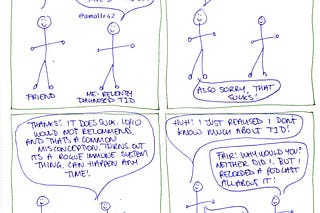 @amollr42
FRIEND
ME - RECENTLY
DIAGNOSED T1D
ALSO SORRY, THAT
SUCKS!
THANKS! IT DOES SUCK. 10/10
WOULD NOT RECOMMEND,
AND THAT'S A COMMON
MISCONCEPTION, TURNS OUT
ITS A ROGUE IMMUNE SYSTEM
THING. CAN HAPPEN ANY
TIME!
HUH! I JUST REALISED I DONT
KNOW MUCH ABOUT T1D!
FAIR! WHY WOULD YOU?
NEITHER DID I, BUT I
RELOADED A PODCAST
ALL ABOUT IT!